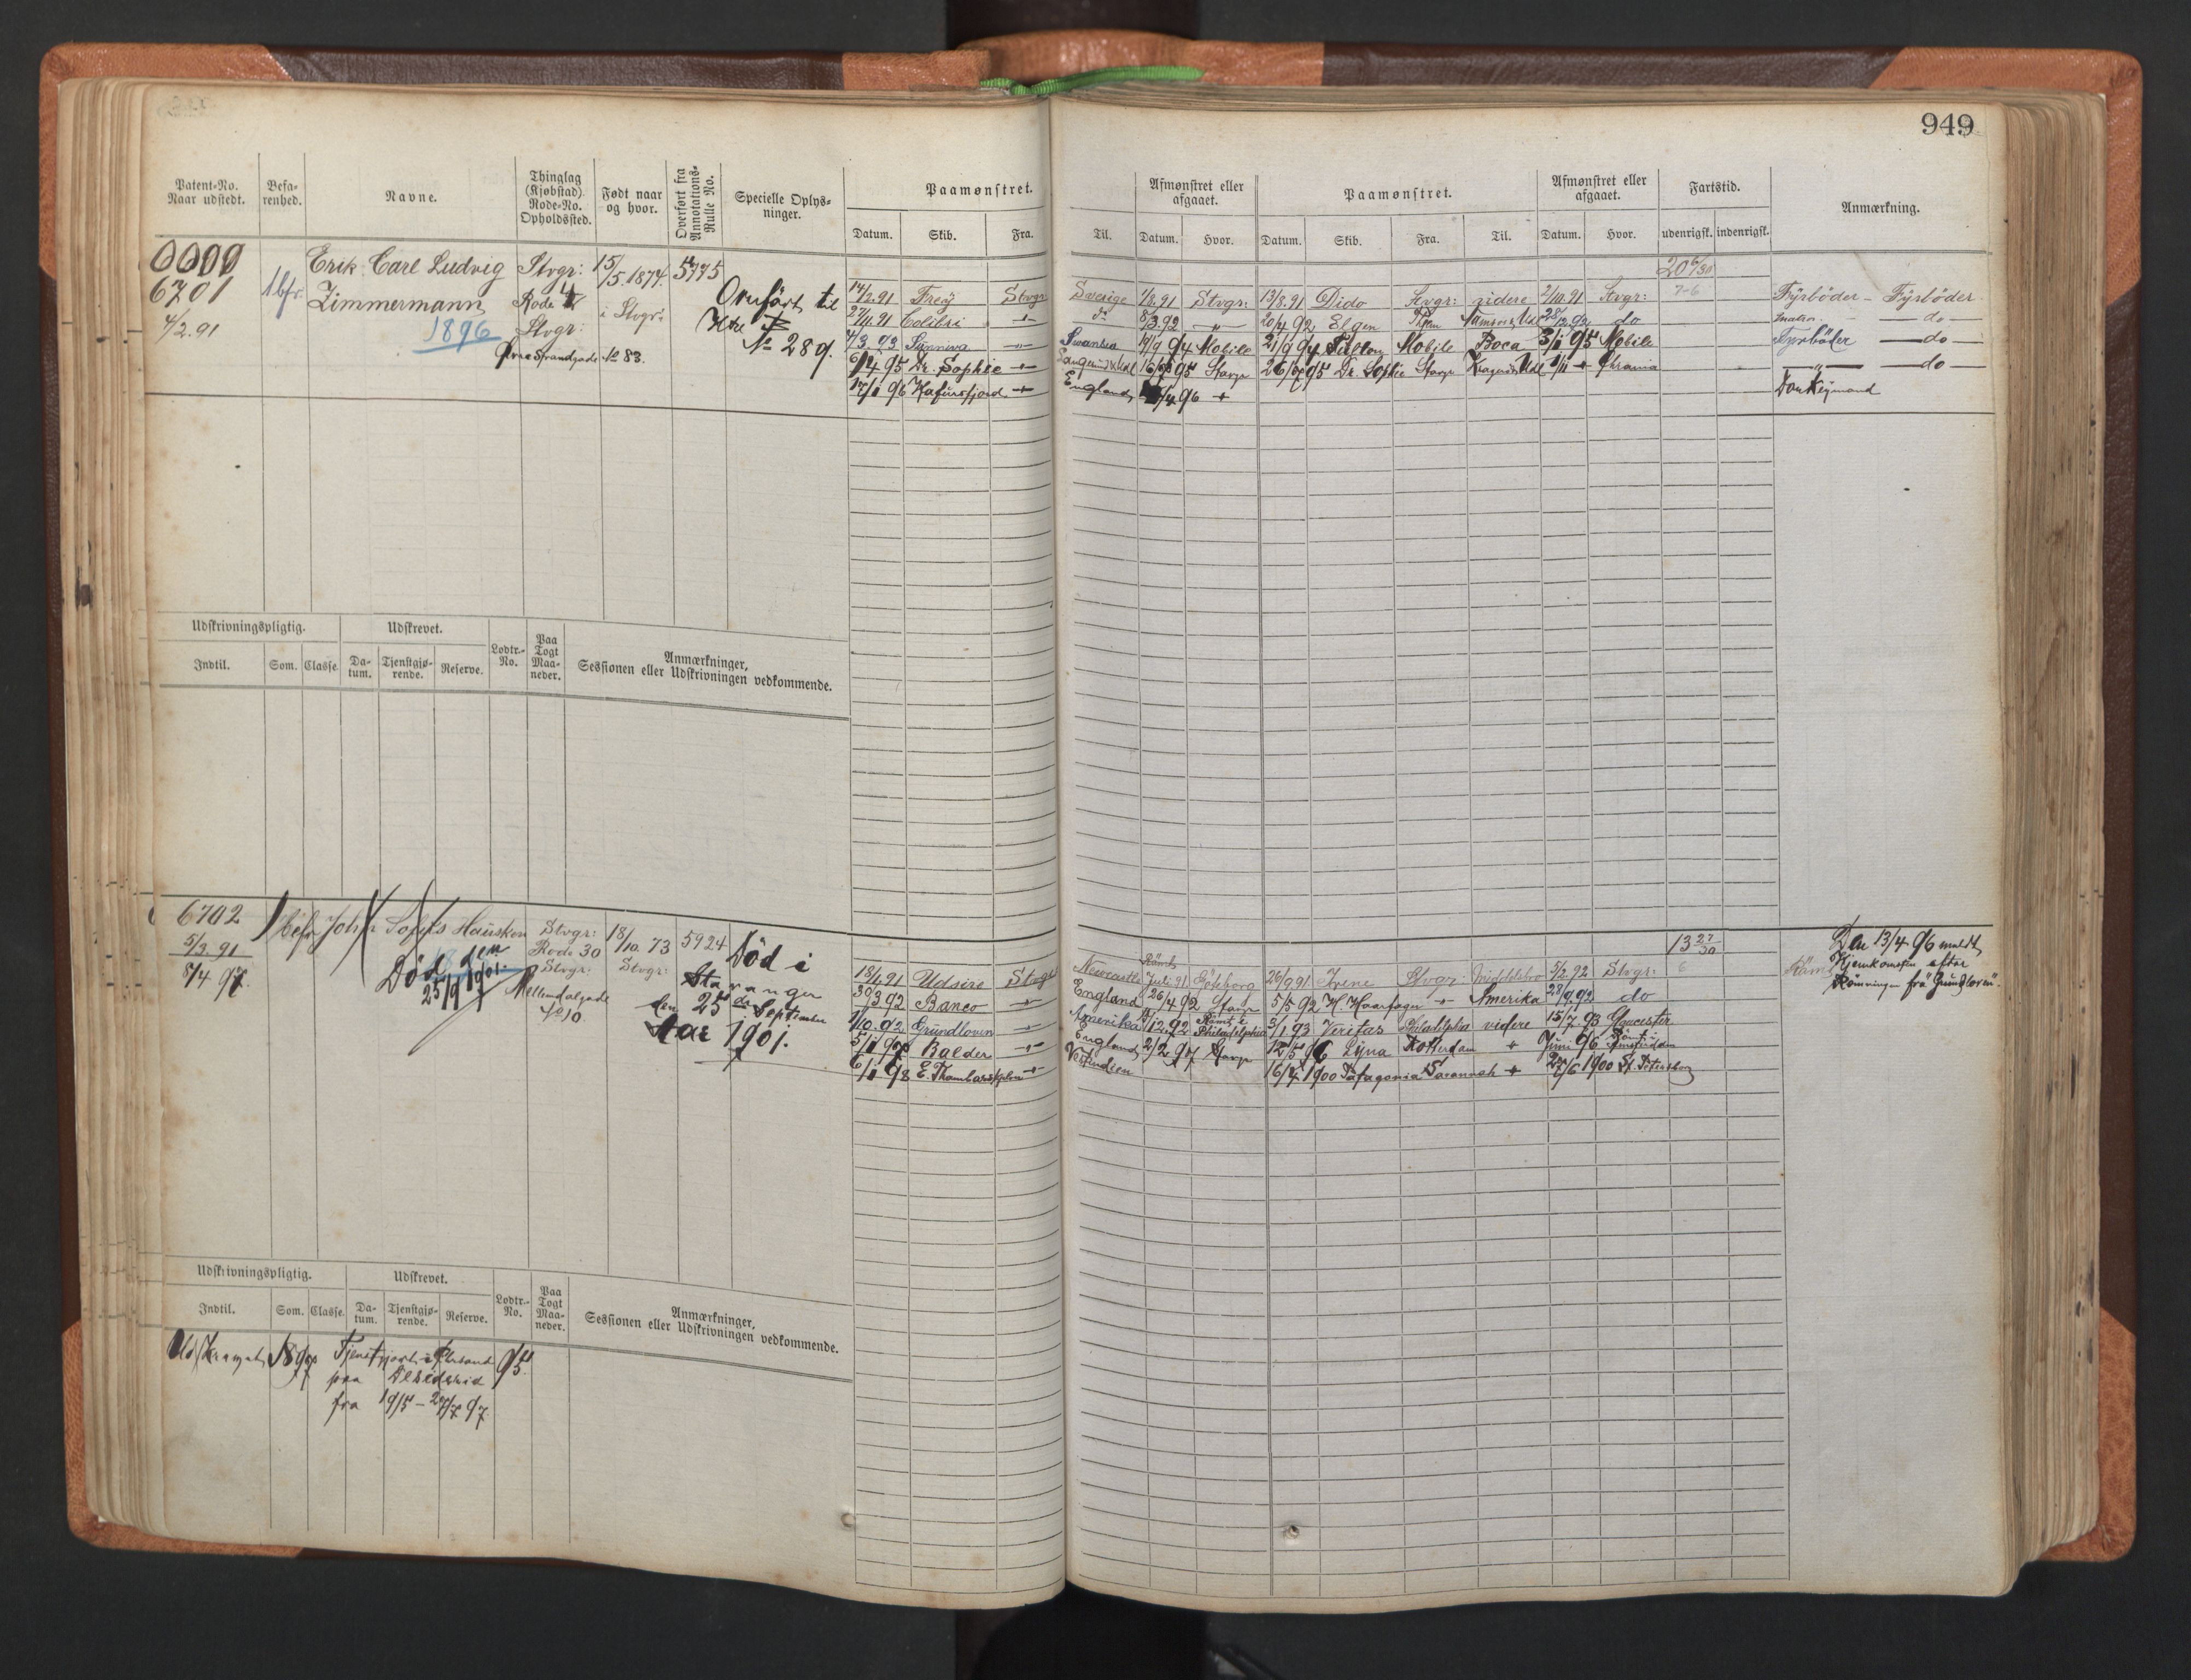 949
Patent-No. Naar udstedt. Befa-renhed. Navne. Thinglag (Kjøbstad). Rode-No. Opholdssted. Født naar og hvor. Overført fra Annotations-Rulle No. Specielle Oplys-ninger. Paamønstret. Afmønstret eller afgaaet. Paamønstret. Afmønstret eller afgaaet. Fartstid. Anmærkning.
Datum. Skib. Fra. Til. Datum. Hvor. Datum. Skib. Fra. Til. Datum. Hvor. udenrigsk. indenrigsk.
0000 Erik Carl Ludvig Stvgr: 15/5.1874. 5775 20 6/30
6701 1bfr. Zimmermann Rode 4 i Stvgr: Overført til 14/2.91 Frey Stvgr Sverige 1/8.91 Stvgr: 13/8.91 Dido Stvgr: videre 2/10.91 Stvgr: 7-6 Fyrbøder - Fyrbøder
4/2.91 1896 Stvgr: No 289. 27/11.91 Colibri do 8/3.92 20/4 92 Elgen 28/12.92 do do
Øvre Strandgade No 83. 7/3.93 Sunniva Swansea 19/9 94 Mobile 21/9 94 Mobile Boca 3/1 95 Mobile Fyrbøder do
6/4 95 Dr. Sophie 95 Stavgr 95 Dr. Sophie Stavgr Chrania do
17/1 96 Hafursfjord England /4 96 Donkeymand
Udskrivningspligtig. Udskrevet. Lodtr.-No. Paa Togt Maa-neder. Anmærkninger, Sessionen eller Udskrivningen vedkommende.
Indtil. Som. Classe. Da-tum. Tjenstgjø-rende. Reserve.
6702 1 befr John Sofus Hausken Stvgr: 18/10 73 5924 Død i 13 27/30 Den 13/4 96 meldt
5/3.91 Død den Rode 30 Stvgr: Stavanger 18/4 91 Udsire Stvgr Newcastle Rømt Juli 91 Göteborg 26/9 91 Irene Stvgr: 5/2.92 Stvgr: 6 Rømt Hjemkomsten efter
8/4 97. 25/9 1901. Stvgr: den 25de September 30/3 92 Banco England 26/4 92 Stavgr 5/5 92 H. Haarfager Amerika 28/9 92 do Rømningen fra "Grundloven".
Møllendalgade Aar 1901. 1/10.92 Grundloven Amerika /12.92 Rømt i Philadelphia 3/1 93 Veritas Philadelphia videre 15/7 93 Gloucester
No 10. Balder England 2/2 97 Stavgr 12/5 96 Lyna Rotterdam Juni 96 Rømt i Amsterdam
6/1 98 E. Thambarskjelver Vestindien 16/4 1900 Patagonia Savannah /6 1900 St. Petersborg
Udskrivningspligtig. Udskrevet. Lodtr.-No. Paa Togt Maa-neder. Anmærkninger, Sessionen eller Udskrivningen vedkommende.
Indtil. Som. Classe. Da-tum. Tjenstgjø-rende. Reserve.
95.
paa
fra 19/5 - 27/7 97